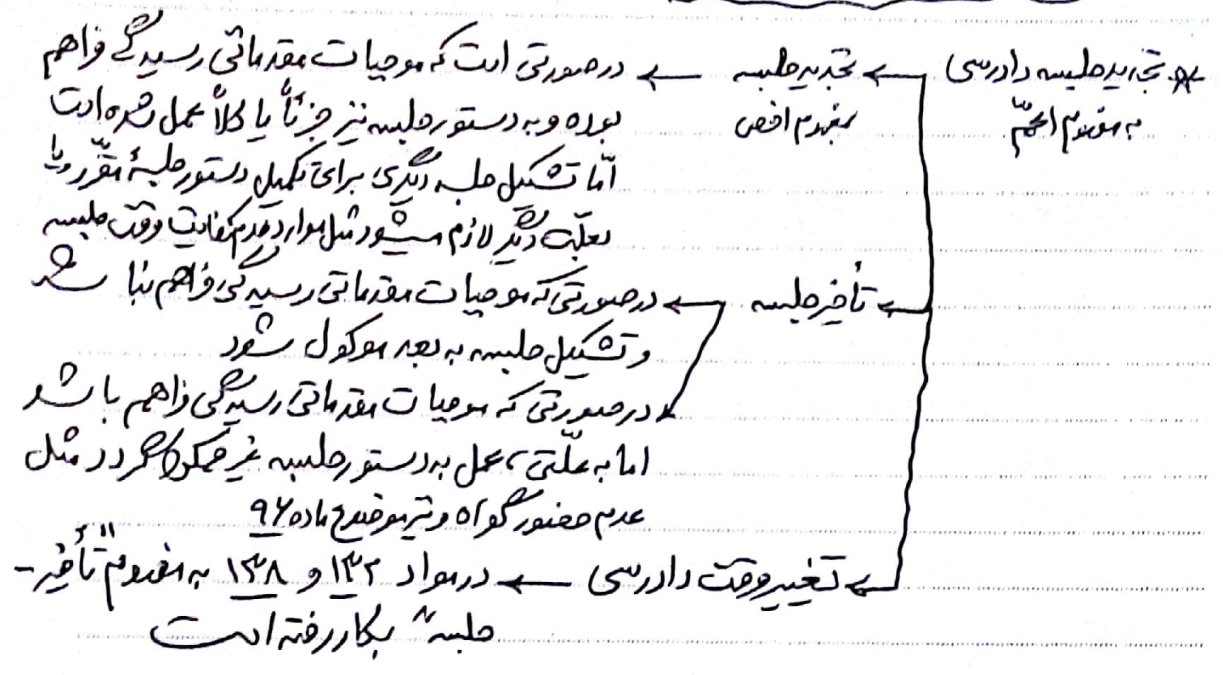 * تجدید جلسه دادرسی ← تجدید جلسه ← در صورتی است که موجبات مقدماتی رسیدگی فراهم
به مفهوم اعمّ بمفهوم اخص بوده و به دستور جلسه نیز جزئاً یا کلاً عمل شده است
امّا تشکیل جلسه دیگری برای تکمیل دستور جلسهٔ مقرّر و یا
بعلّت دیگر لازم میشود مثل موارد عدم کفایت وقت جلسه
← تأخیر جلسه ← در صورتی که موجبات مقدماتی رسیدگی فراهم نباشد
و تشکیل جلسه به بعد موکول شود
در صورتی که موجبات مقدماتی رسیدگی فراهم باشد
اما به علّتی، عمل به دستور جلسه غیرممکن گردد مثل
عدم حضور گواه و نیز موضوع ماده ۹۶
← تغییر وقت دادرسی ← در مواد ۱۳۲ و ۱۳۸ به مفهوم "تأخیر-
جلسه" بکار رفته است